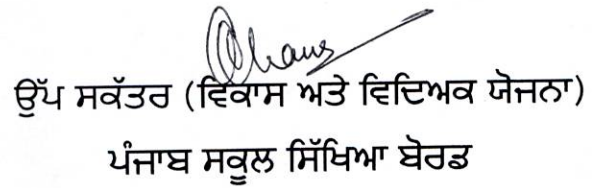 ਉੱਪ ਸਕੱਤਰ (ਵਿਕਾਸ ਅਤੇ ਵਿਦਿਅਕ ਯੋਜਨਾ)
ਪੰਜਾਬ ਸਕੂਲ ਸਿੱਖਿਆ ਬੋਰਡ